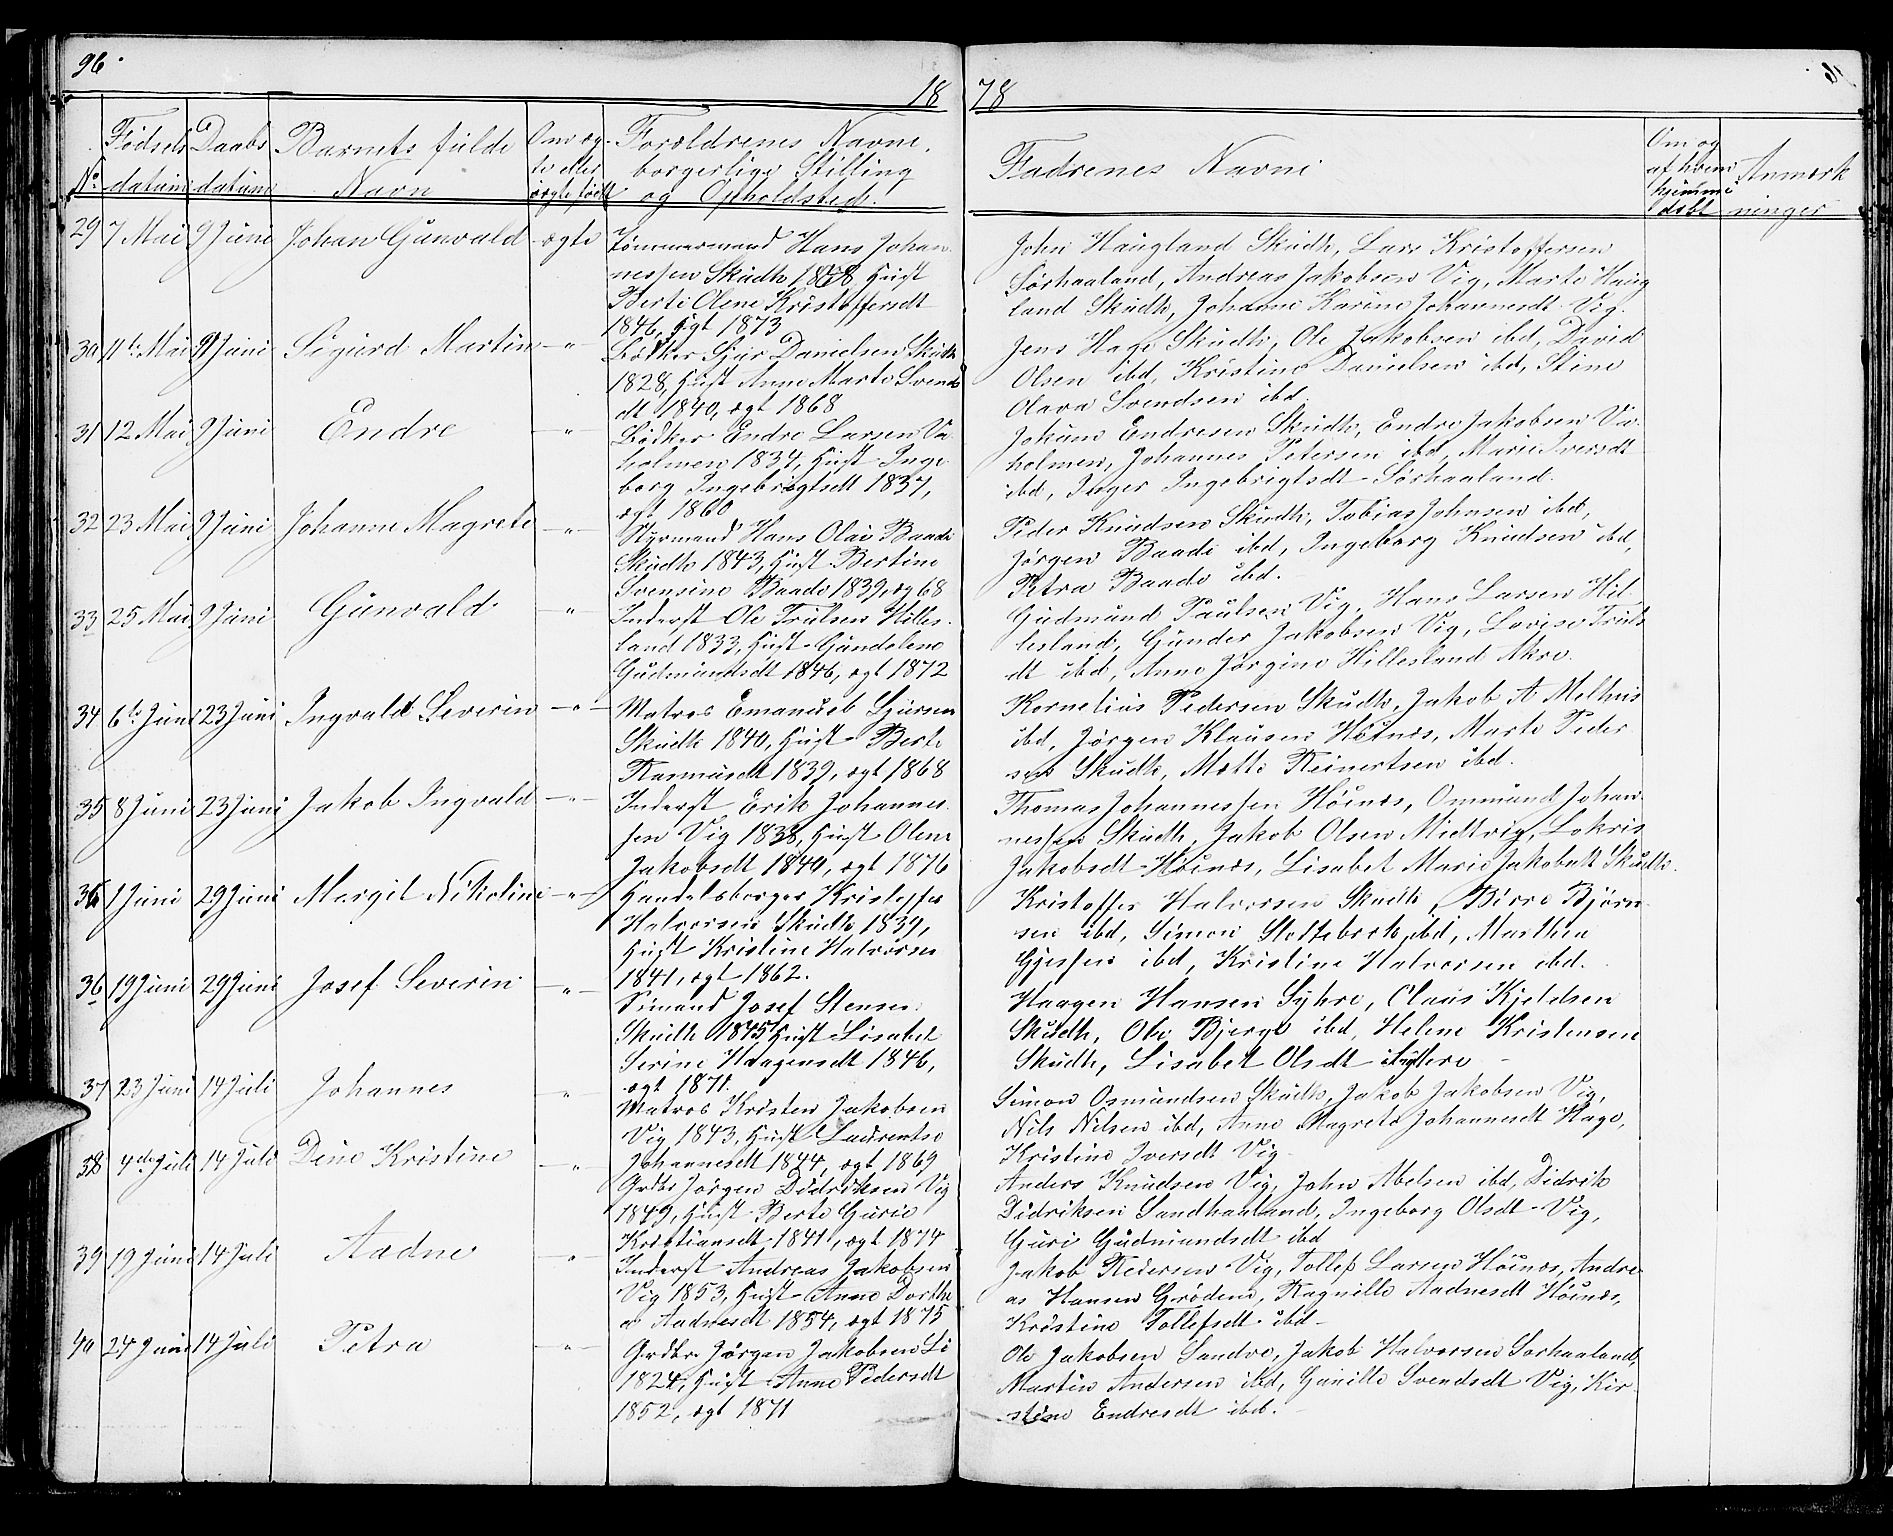 96.
18 78
Fødsels Daabs Barnets fulde Om æg- Forældrenes Navne,
te eller borgerlige Stilling
No datum datum Navn uægte født og Opholdsted.
Fadrenes Navne
Om og
af hvem
hjemme
døbt
Anmærk
ninger
29 7 Mai 9 Juni Johan Gunvald ægte Tømmermand Hans Johan
nessen Skudh 1848, Hust
Berte Olene Kristoffersdt
1846, ægt 1873
John Haugland Skudh, Lars Kristoffersen
Sørhaaland, Andreas Jakobsen Vig, Marte Haug
land Skudh, Johanne Karine Johannesdt Vig.
30 11te Mai 9 Juni Sigurd Martin -"- Bødker Sjur Danielsen Skudh
1828, Hust Anne Marte Svends
dt 1840, ægt 1868
Jens Hage Skudh, Ole Jakobsen ibd, David
Olsen ibd, Kristine Danielsen ibd, Stine
Olava Svendsen ibd.
31 12 Mai 9 Juni Endre -"- Bødker Endre Larsen Va
holmen 1834, Hust Inge
borg Ingebrigtsdt 1837,
ægt 1860
Jokum Endresen Skudh, Endre Jakobsen Va-
holmen, Johannes Petersen ibd, Marie Iversdt
ibd, Inger Ingebrigtsdt Sørhaaland.
32 23 Mai 9 Juni Johanne Magrete -"- Styrmand Hans Olai Baade
Skudh 1843, Hust Bertine
Svensine Baade 1839, æg 68
Peder Knudsen Skudh, Tobias Johnsen ibd,
Jørgen Baade ibd, Ingeborg Knudsen ibd,
Petra Baade ibd.
33 25 Mai 9 Juni Gunvald -"- Inderst Ole Trulsen Hilles-
land 1833, Hust Gundelene
Gudmundsdt 1846, ægt 1872
Gudmund Paulsen Vig, Hans Larsen Hil
lesland, Gunder Jakobsen Vig, Lovise Truls
dt ibd, Anne Jørgine Hillesland Akre.
34 6te Juni 23 Juni Ingvald Severin -"- Matros Emanuel Sjursen
Skudh 1840, Hust Berte
Rasmusdt 1839, ægt 1868
Kornelius Pedersen Skudh, Jakob A Melhus
ibd, Jørgen Klausen Høinæs, Marte Peder
sen Skudh, Mette Reinertsen ibd.
35 8 Juni 23 Juni Jakob Ingvald -"- Inderst Erik Johannes-
sen Vig 1838, Hust Olene
Jakobsdt 1840, ægt 1876
Thomas Johannessen Høinæs, Ommund Johan-
nessen Skudh, Jakob Olsen Midtvig, Lokris
Jakobsdt Høinæs, Lisabet Marie Jakobsdt Skudh.
36 1 Juni 29 Juni Margit Nikoline -"- Handelsborger Kristoffer
Halvorsen Skudh 1839,
Hust Kristine Halvorsen
1841, ægt 1862.
Kristoffer Halvorsen Skudh, Birre Bjørn
sen ibd, Simon Slottebrek ibd, Marthea
Gjessen ibd, Kristine Halvorsen ibd.
36 19 Juni 29 Juni Josef Severin -"- Sømand Josef Stensen
Skudh 1845, Hust Lisabet
Serine Haagensdt 1846,
ægt 1871.
Haagen Hansen Syhre, Claus Kjeldsen
Skudh, Ole Bjerge ibd, Helene Kristensen
Skudh, Lisabet Olsdt Syhre
37 23 Juni 14 Juli Johannes -"- Matros Kristen Jakobsen
Vig 1843, Hust Laurentse
Johannesdt 1844, ægt 1869
Simon Osmundsen Skudh, Jakob Jakobsen Vig,
Nils Nilsen ibd, Anne Magrete Johannesdt Hage,
Kristine Iversdt Vig
38 4de Juli 14 Juli Dine Kristine -"- Grdbr Jørgen Didriksen Vig
1849, Hust Berte Gurie
Kristiansdt 1841, ægt 1874
Anders Knudsen Vig, John Abelsen ibd, Didrik
Didriksen Sandhaaland, Ingeborg Olsdt Vig,
Guri Gudmundsdt ibd
39 19 Juni 14 Juli Aadne -"- Inderst Andreas Jakobsen
Vig 1853, Hust Anne Dorthe
a Aadnesdt 1854, ægt 1875
Jakob Pedersen Vig, Tollef Larsen Høinæs, Andre
as Hansen Grødem, Ragnille Aadnesdt Høinæs,
Kristine Tollefsdt ibd
40 24 Juni 14 Juli Petra -"- Grdbr Jørgen Jakobsen Li
1824, Hust Anne Pedersdt
1852, ægt 1871
Ole Jakobsen Sandve, Jakob Halvorsen Sørhaaland,
Martin Andersen ibd, Gunille Svendsdt Vig, Kir
stine Endresdt ibd.